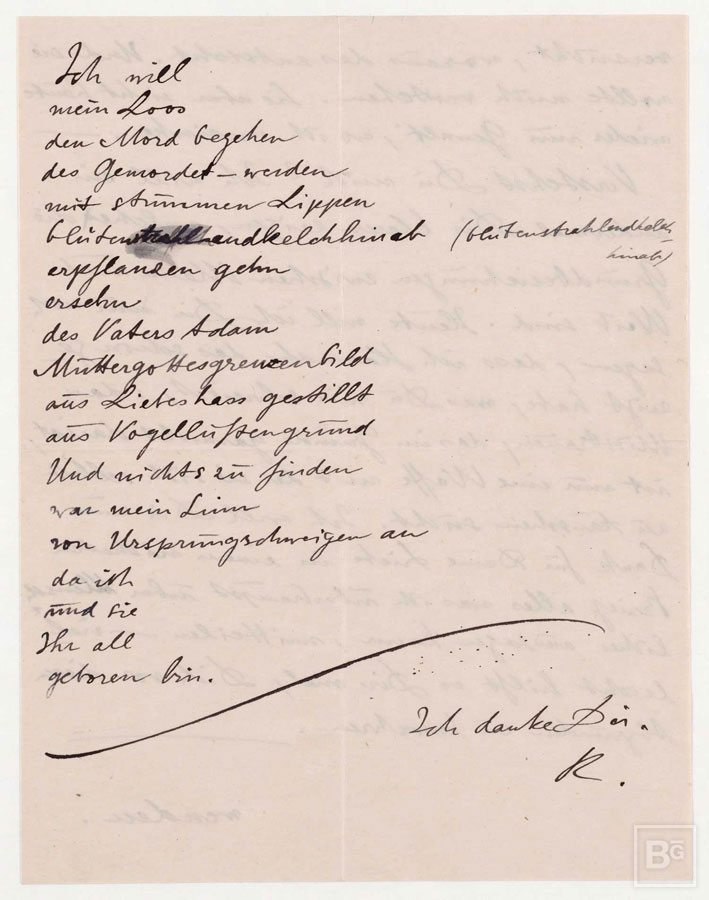 Ich will
mein Loos
den Mord begehen
des Gemordet-werden
mit stummen Lippen
blütenstrahlendkelchhinab (blütenstrahlendkelch-
hinab)
erpflanzen gehn
ersehn
des Vaters Adam
Muttergottesgrenzenbild
aus Liebeshass gestillt
aus Vogellüftengrund
Und nichts zu finden
war mein Sinn
von Ursprungschweigen an
da ich
und sie
Ihr all
geboren bin.
Ich danke Dir.
K.